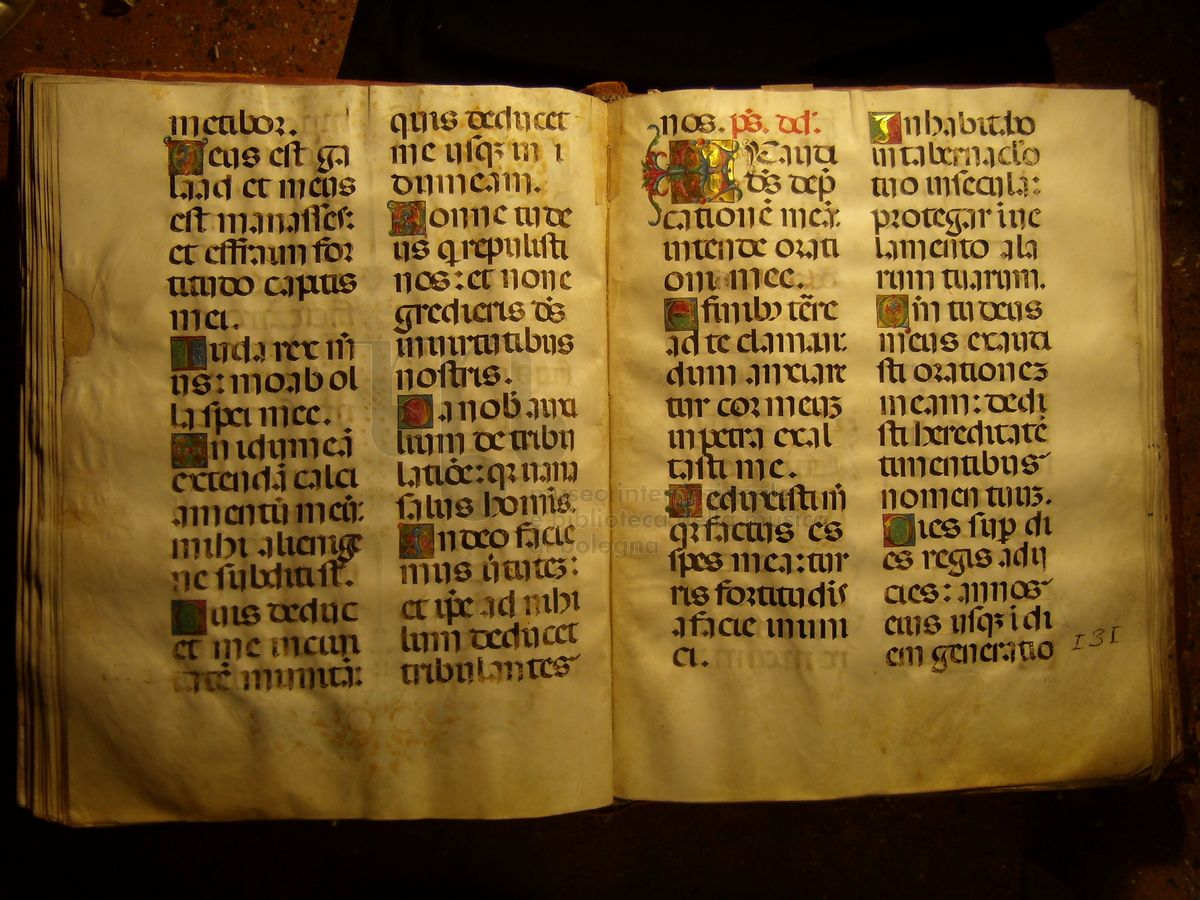 metibor.
Deus est ga
laad et meus
est manasses:
et effraim for
titudo capitis
mei.
Iuda rex m̄
us: moab ol
la spei mee.
In idumeā
extendā calci
amentū meū:
mihi alienige
ne subditi st̄.
Quis deduc
et me in ciui
tatē munitā:
quis deducet
me usqꝫ in i
dumeam.
Nonne tu de
us q repulisti
nos: et non e
gredieris d̄s
in uirtutibus
nostris.
Da nob̄ auxi
lium de tribu
latiōe: qꝛ uana
salus homīs.
In deo facie
mus ūtutez:
et ip̄e ad nihi
lum deducet
tribulantes
nos. ps̄. dd̄.
EXaudi
d̄s dep̄
cationē meā:
intende orati
oni mee.
A finibꝰ terre
ad te clamaui:
dum anxiare
tur cor meuz
in petra exal
tasti me.
Deduxisti m̄
qꝛ factus es
spes mea: tur
ris fortitudīs
a facie inimi
ci.
Inhabitabo
in tabernaclo
tuo in secula:
protegar in ue
lamento ala
rum tuarum.
Qm̄ tu deus
meus exaudi
sti orationez
meam: dedi
sti hereditatē
timentibus
nomen tuuz.
Dies sup̄ di
es regis adij
cies: annos
eius usqꝫ i di
em generatio
131
museo internazionale
e biblioteca della musica
di bologna